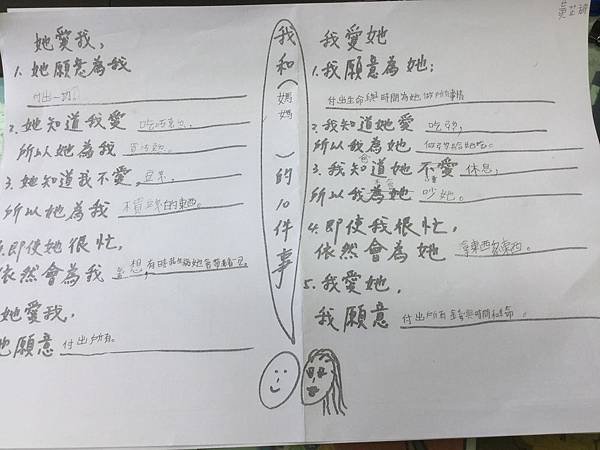 她愛我，
1. 她願意為我
付出一切
2. 她知道我愛 吃巧克力，
所以她為我 買巧克力。
3. 她知道我不愛，豆類，
所以她為我 不買豆類的東西。
4.即使她很忙，
依然會為我 著想，
她愛我，
她願意 付出所有。
我和(媽媽)的10件事
我愛她
1.我願意為她：
付出生命與時間為她做所有事情
2.我知道她愛 吃
所以我為她
3.我知道她不愛 休息，
所以我為她 吵她。
4.即使我很忙，
依然會為她 拿東西
5.我愛她，
我願意 付出所有